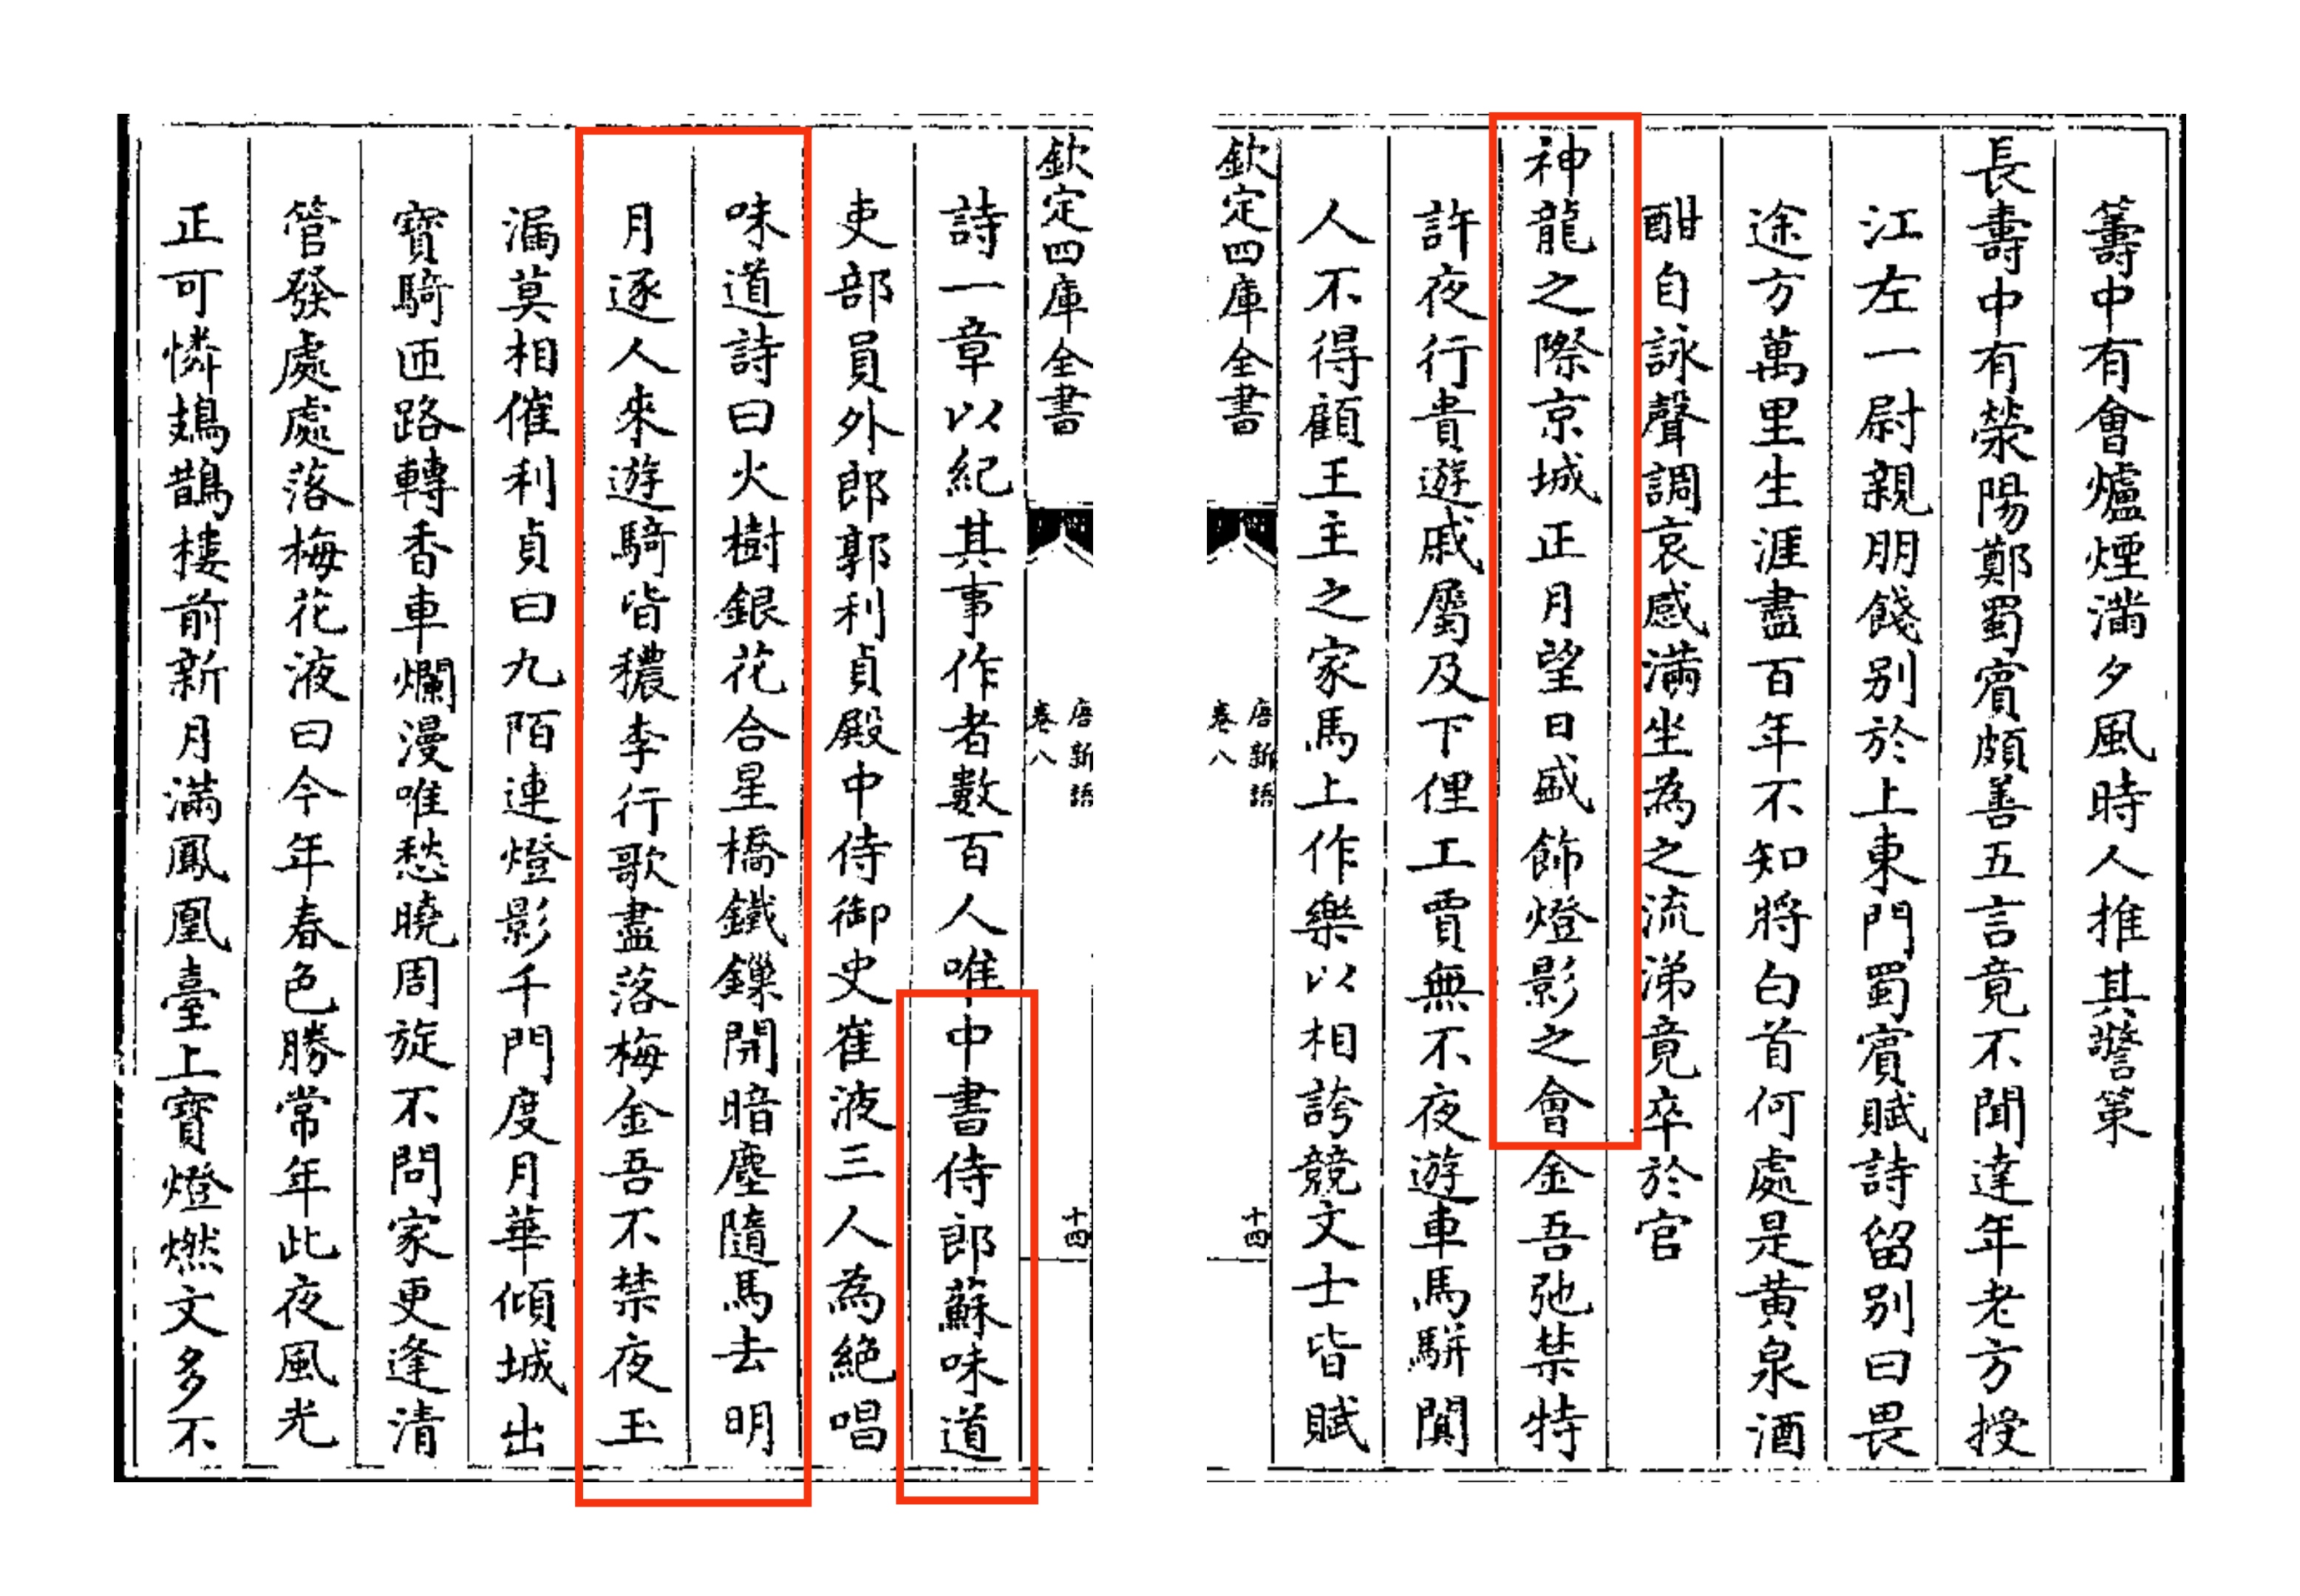 籌中有會爐煙滿夕風時人推其警策
長壽中有滎陽鄭蜀賓頗善五言竟不聞達年老方授
江左一尉親朋餞别於上東門蜀賓賦詩留别曰畏
途方萬里生涯盡百年不知將白首何處是黄泉酒
酣自詠聲調哀感滿坐為之流涕竟卒於官
神龍之際京城正月望日盛飾燈影之會金吾弛禁特
許夜行貴遊戚屬及下俚工賈無不夜遊車馬駢闐
人不得顧王主之家馬上作樂以相誇競文士皆賦
欽定四庫全書
唐新語
卷八
十四
欽定四庫全書
唐新語
卷八
十四
詩一章以紀其事作者數百人唯中書侍郎蘇味道
吏部員外郎郭利貞殿中侍御史崔液三人為絶唱
味道詩曰火樹銀花合星橋鐵鏁開暗塵隨馬去明
月逐人來遊騎皆穠李行歌盡落梅金吾不禁夜玉
漏莫相催利貞曰九陌連燈影千門度月華傾城出
寶騎匝路轉香車爛漫唯愁曉周旋不問家更逢清
管發處處落梅花液曰今年春色勝常年此夜風光
正可憐鳷鵲樓前新月滿鳳凰臺上寶燈燃文多不